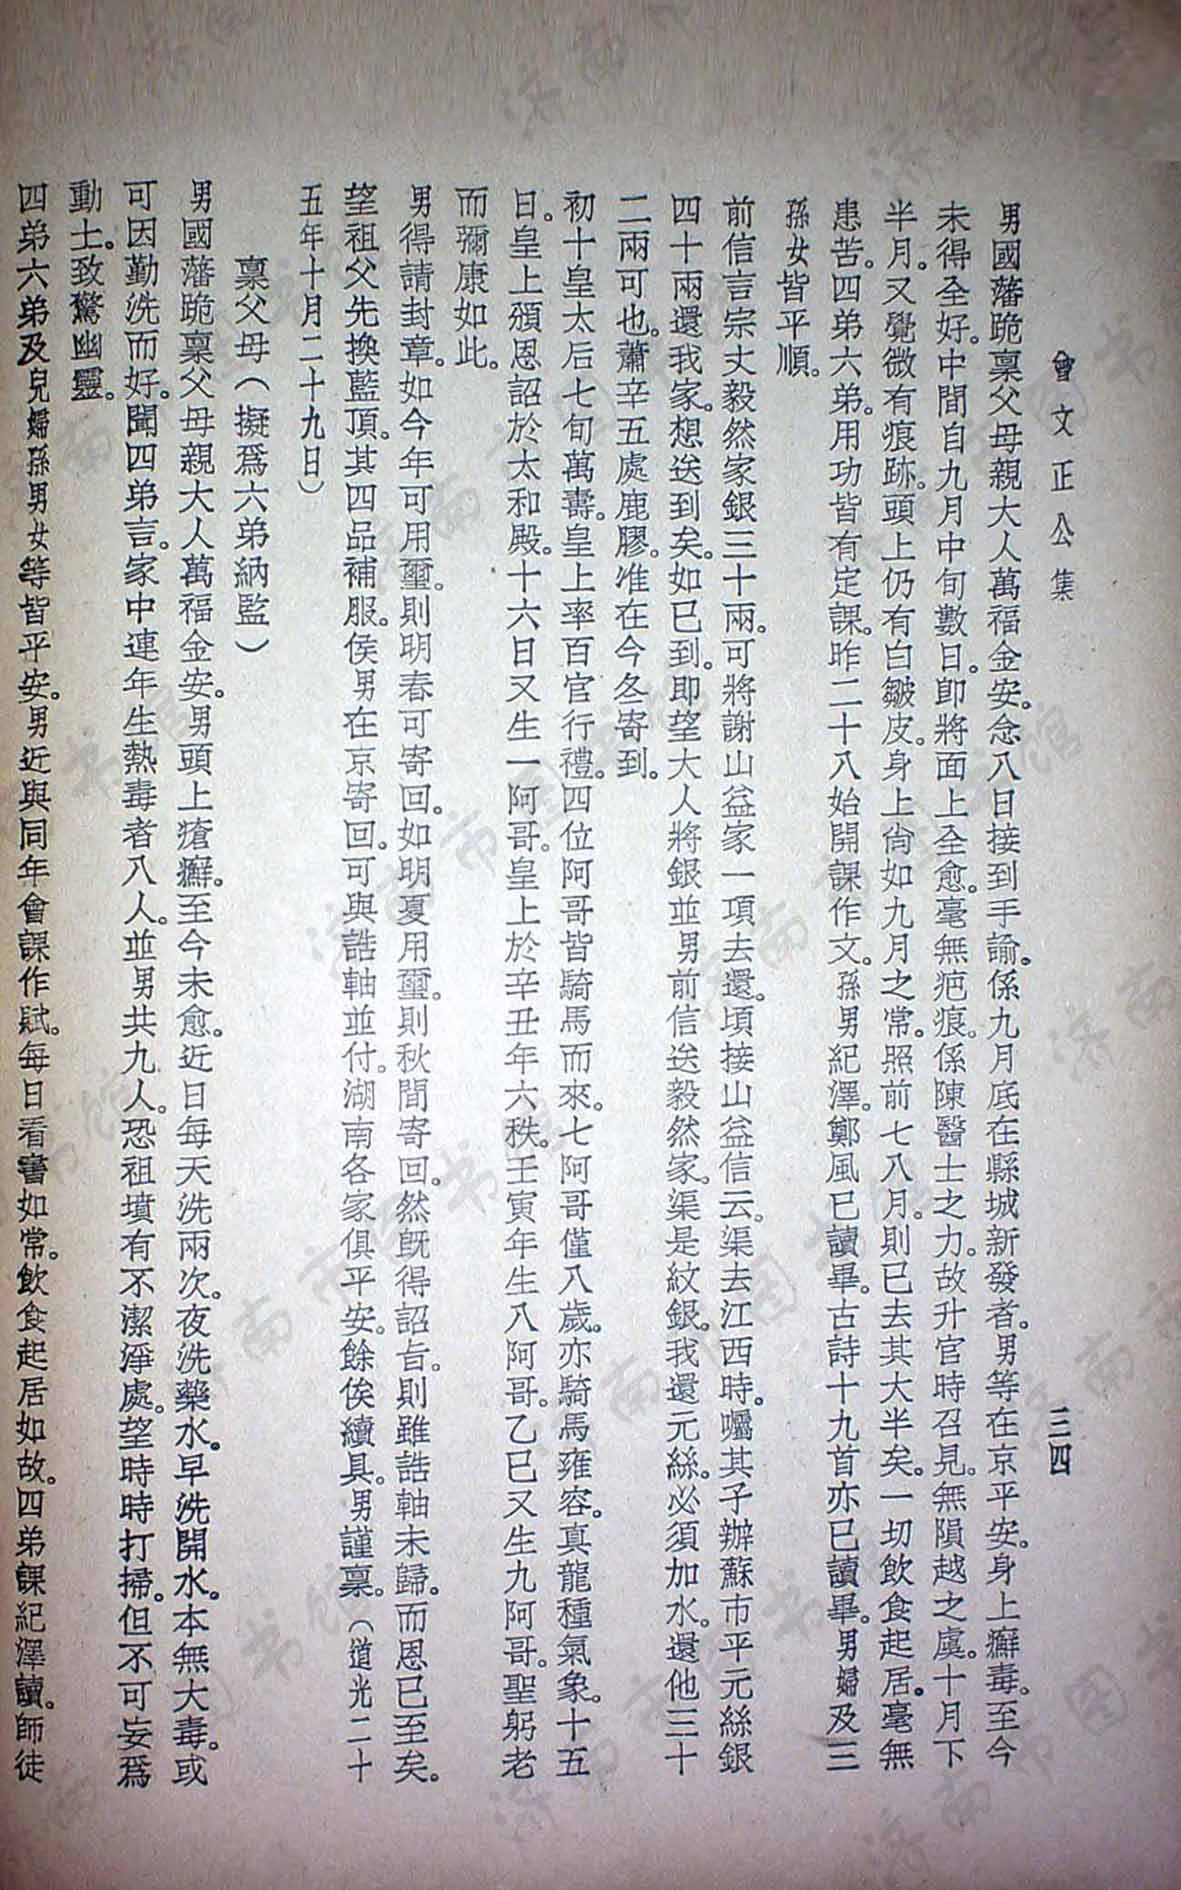 曾文正公集　三四
男國藩跪稟父母親大人萬福金安。念八日接到手諭。係九月底在縣城新發者。男等在京平安。身上癬毒。至今
未得全好。中間自九月中旬數日。卽將面上全愈。毫無疤痕。係陳醫士之力。故升官時召見。無隕越之虞。十月下
半月。又覺微有痕跡。頭上仍有白皺皮。身上尙如九月之常。照前七八月。則已去其大半矣。一切飲食起居。毫無
患苦。四弟六弟。用功皆有定課。昨二十八始開課作文。孫男紀澤。鄭風已讀畢。古詩十九首亦已讀畢。男婦及三
孫女皆平順。
前信言宗丈毅然家銀三十兩。可將謝山益家一項去還。頃接山益信云。渠去江西時。囑其子辦蘇市平元絲銀
四十兩還我家。想送到矣。如已到。卽望大人將銀並男前信送毅然家。渠是紋銀。我還元絲。必須加水。還他三十
二兩可也。蕭辛五處鹿膠。准在今冬寄到。
初十皇太后七旬萬壽。皇上率百官行禮。四位阿哥皆騎馬而來。七阿哥僅八歲。亦騎馬雍容。真龍種氣象。十五
日。皇上頒恩詔於太和殿。十六日又生一阿哥。皇上於辛丑年六秩。壬寅年生八阿哥。乙巳又生九阿哥。聖躬老
而彌康如此。
男得請封章。如今年可用璽。則明春可寄回。如明夏用璽。則秋間寄回。然旣得詔旨。則雖誥軸未歸。而恩已至矣。
望祖父先換藍頂。其四品補服。俟男在京寄回。可與誥軸並付。湖南各家俱平安。餘俟續具。男謹稟。（道光二十
五年十月二十九日）
稟父母（擬爲六弟納監）
男國藩跪稟父母親大人萬福金安。男頭上瘡癬。至今未愈。近日每天洗兩次。夜洗藥水。早洗開水。本無大毒。或
可因勤洗而好。聞四弟言。家中連年生熱毒者八人。並男共九人。恐祖墳有不潔淨處。望時時打掃。但不可妄爲
動士。致驚幽靈。
四弟六弟及兒婦孫男女等皆平安。男近與同年會課作賦。每日看書如常。飲食起居如故。四弟課紀澤讀。師徒